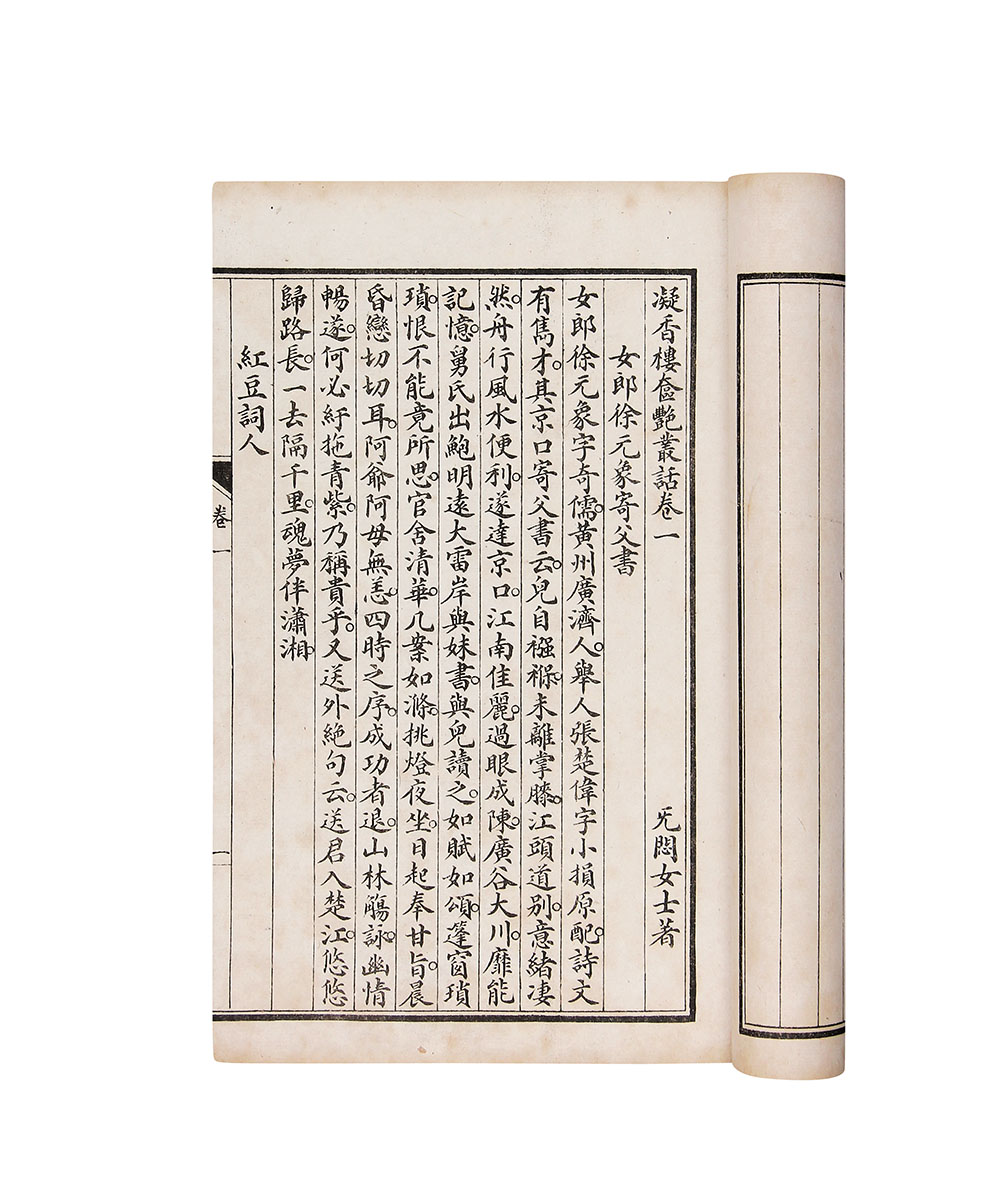 凝香樓奩艷叢話卷一　旡悶女士著
女郎徐元象寄父書
女郎徐元象字奇儒。黃州廣濟人。舉人張楚偉字小損原配。詩文
有雋才。其京口寄父書云。兒自襁褓。未離掌膝。江頭道別。意緒凄
然。舟行風水便利。遂達京口。江南佳麗。過眼成陳。廣谷大川。靡能
記憶。舅氏出鮑明遠大雷岸與妹書。與兒讀之。如賦如頌。篷窗瑣
瑣。恨不能竟所思。官舍清華。几案如滌。挑燈夜坐。日起奉甘旨。晨
昏戀切切耳。阿爺阿母無恙。四時之序。成功者退。山林觴詠。幽情
暢遂。何必紆拖青紫。乃稱貴乎。又送外絕句云。送君入楚江。悠悠
歸路長。一去隔千里。魂夢伴瀟湘。
紅豆詞人
卷一